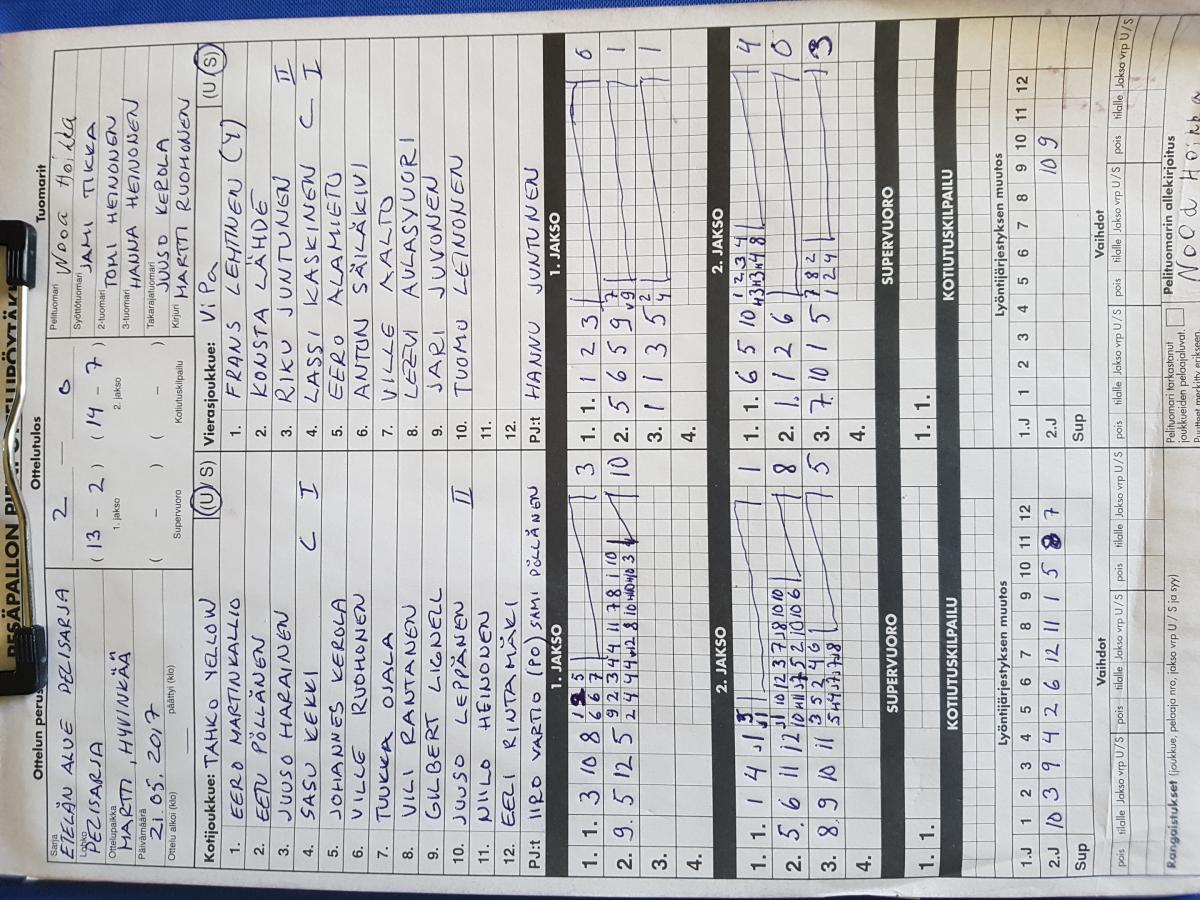 PESÄPALLON PIENPELIPÖYTÄKIRJA
Ottelun perus
Ottelutulos
Tuomarit
Sarja
ETELÄN ALUE PELISARJA
Lohko
PELISARJA
Ottelupaikka
MARTTI, HYVINKÄÄ
Päivämäärä
21.05.2017
Ottelu alkoi (klo)
päättyi (klo)
2 — 0
(13 - 2) (14 - 7)
1. jakso 2. jakso
( - ) ( - )
Supervuoro Kotiutuskilpailu
Pelituomari Nooa Hoikka
Syöttötuomari JAMI TIKKA
2-tuomari TOMI HEINONEN
3-tuomari HANNA HEINONEN
Takarajatuomari JUUSO KEROLA
Kirjuri MARTTI RUOHONEN
Kotijoukkue: TAHKO YELLOW (U/S)
1. EERO MARTINKALLIO
2. EETU PÖLLÄNEN
3. JUUSO HARAINEN
4. SASU KEKKI C I
5. JOHANNES KEROLA
6. VILLE RUOHONEN
7. TUUKKA OJALA
8. VILI RANTANEN
9. GILBERT LIGNELL
10. JUUSO LEPPÄNEN II
11. NIILO HEINONEN
12. EELI RINTAMÄKI
PJ:t IIRO VARTIO (PO) SAMI PÖLLÄNEN
Vierasjoukkue: ViPa (U/S)
1. FRANS LEHTINEN (Y)
2. KONSTA LÄHDE
3. RIKU JUNTUNEN II
4. LASSI KASKINEN C I
5. EERO ALAMIETO
6. ANTON SÄILÄKIVI
7. VILLE AALTO
8. LEEVI AULASVUORI
9. JARI JUVONEN
10. TUOMO LEINONEN
11.
12.
PJ:t HANNU JUNTUNEN
1. JAKSO
1. JAKSO
1. 1. 3 10 8 3
2. 9. 5 12 5 10
3.
4.
1. 1. 1 2 3 0
2. 5 6 5 9 1
3. 1 1 3 5 1
4.
2. JAKSO
2. JAKSO
1. 1. 1 4 1
2. 5. 6 11 12 8
3. 8. 9 10 11 5
4.
1. 1. 6 5 10 4
2. 1. 1 2 6 0
3. 7. 10 1 5 3
4.
SUPERVUORO
SUPERVUORO
1. 1.
1. 1.
KOTIUTUSKILPAILU
KOTIUTUSKILPAILU
Lyöntijärjestyksen muutos
1.J 1 2 3 4 5 6 7 8 9 10 11 12
2.J 10 3 9 4 2 6 12 11 1 5 8 7
Sup
Lyöntijärjestyksen muutos
1.J 1 2 3 4 5 6 7 8 9 10 11 12
2.J 10 9
Sup
Vaihdot
Vaihdot
pois tilalle Jakso vrp U/S pois tilalle Jakso vrp U/S pois tilalle Jakso vrp U/S pois tilalle Jakso vrp U/S pois tilalle Jakso vrp U/S pois tilalle Jakso vrp U/S
Rangaistukset (joukkue, pelaaja nro, jakso vrp U/S ja syy)
Pelituomari tarkastanut
joukkueiden pelaajaluvat.
Puutteet merkitty erikseen
Pelituomarin allekirjoitus
Nooa Hoikka